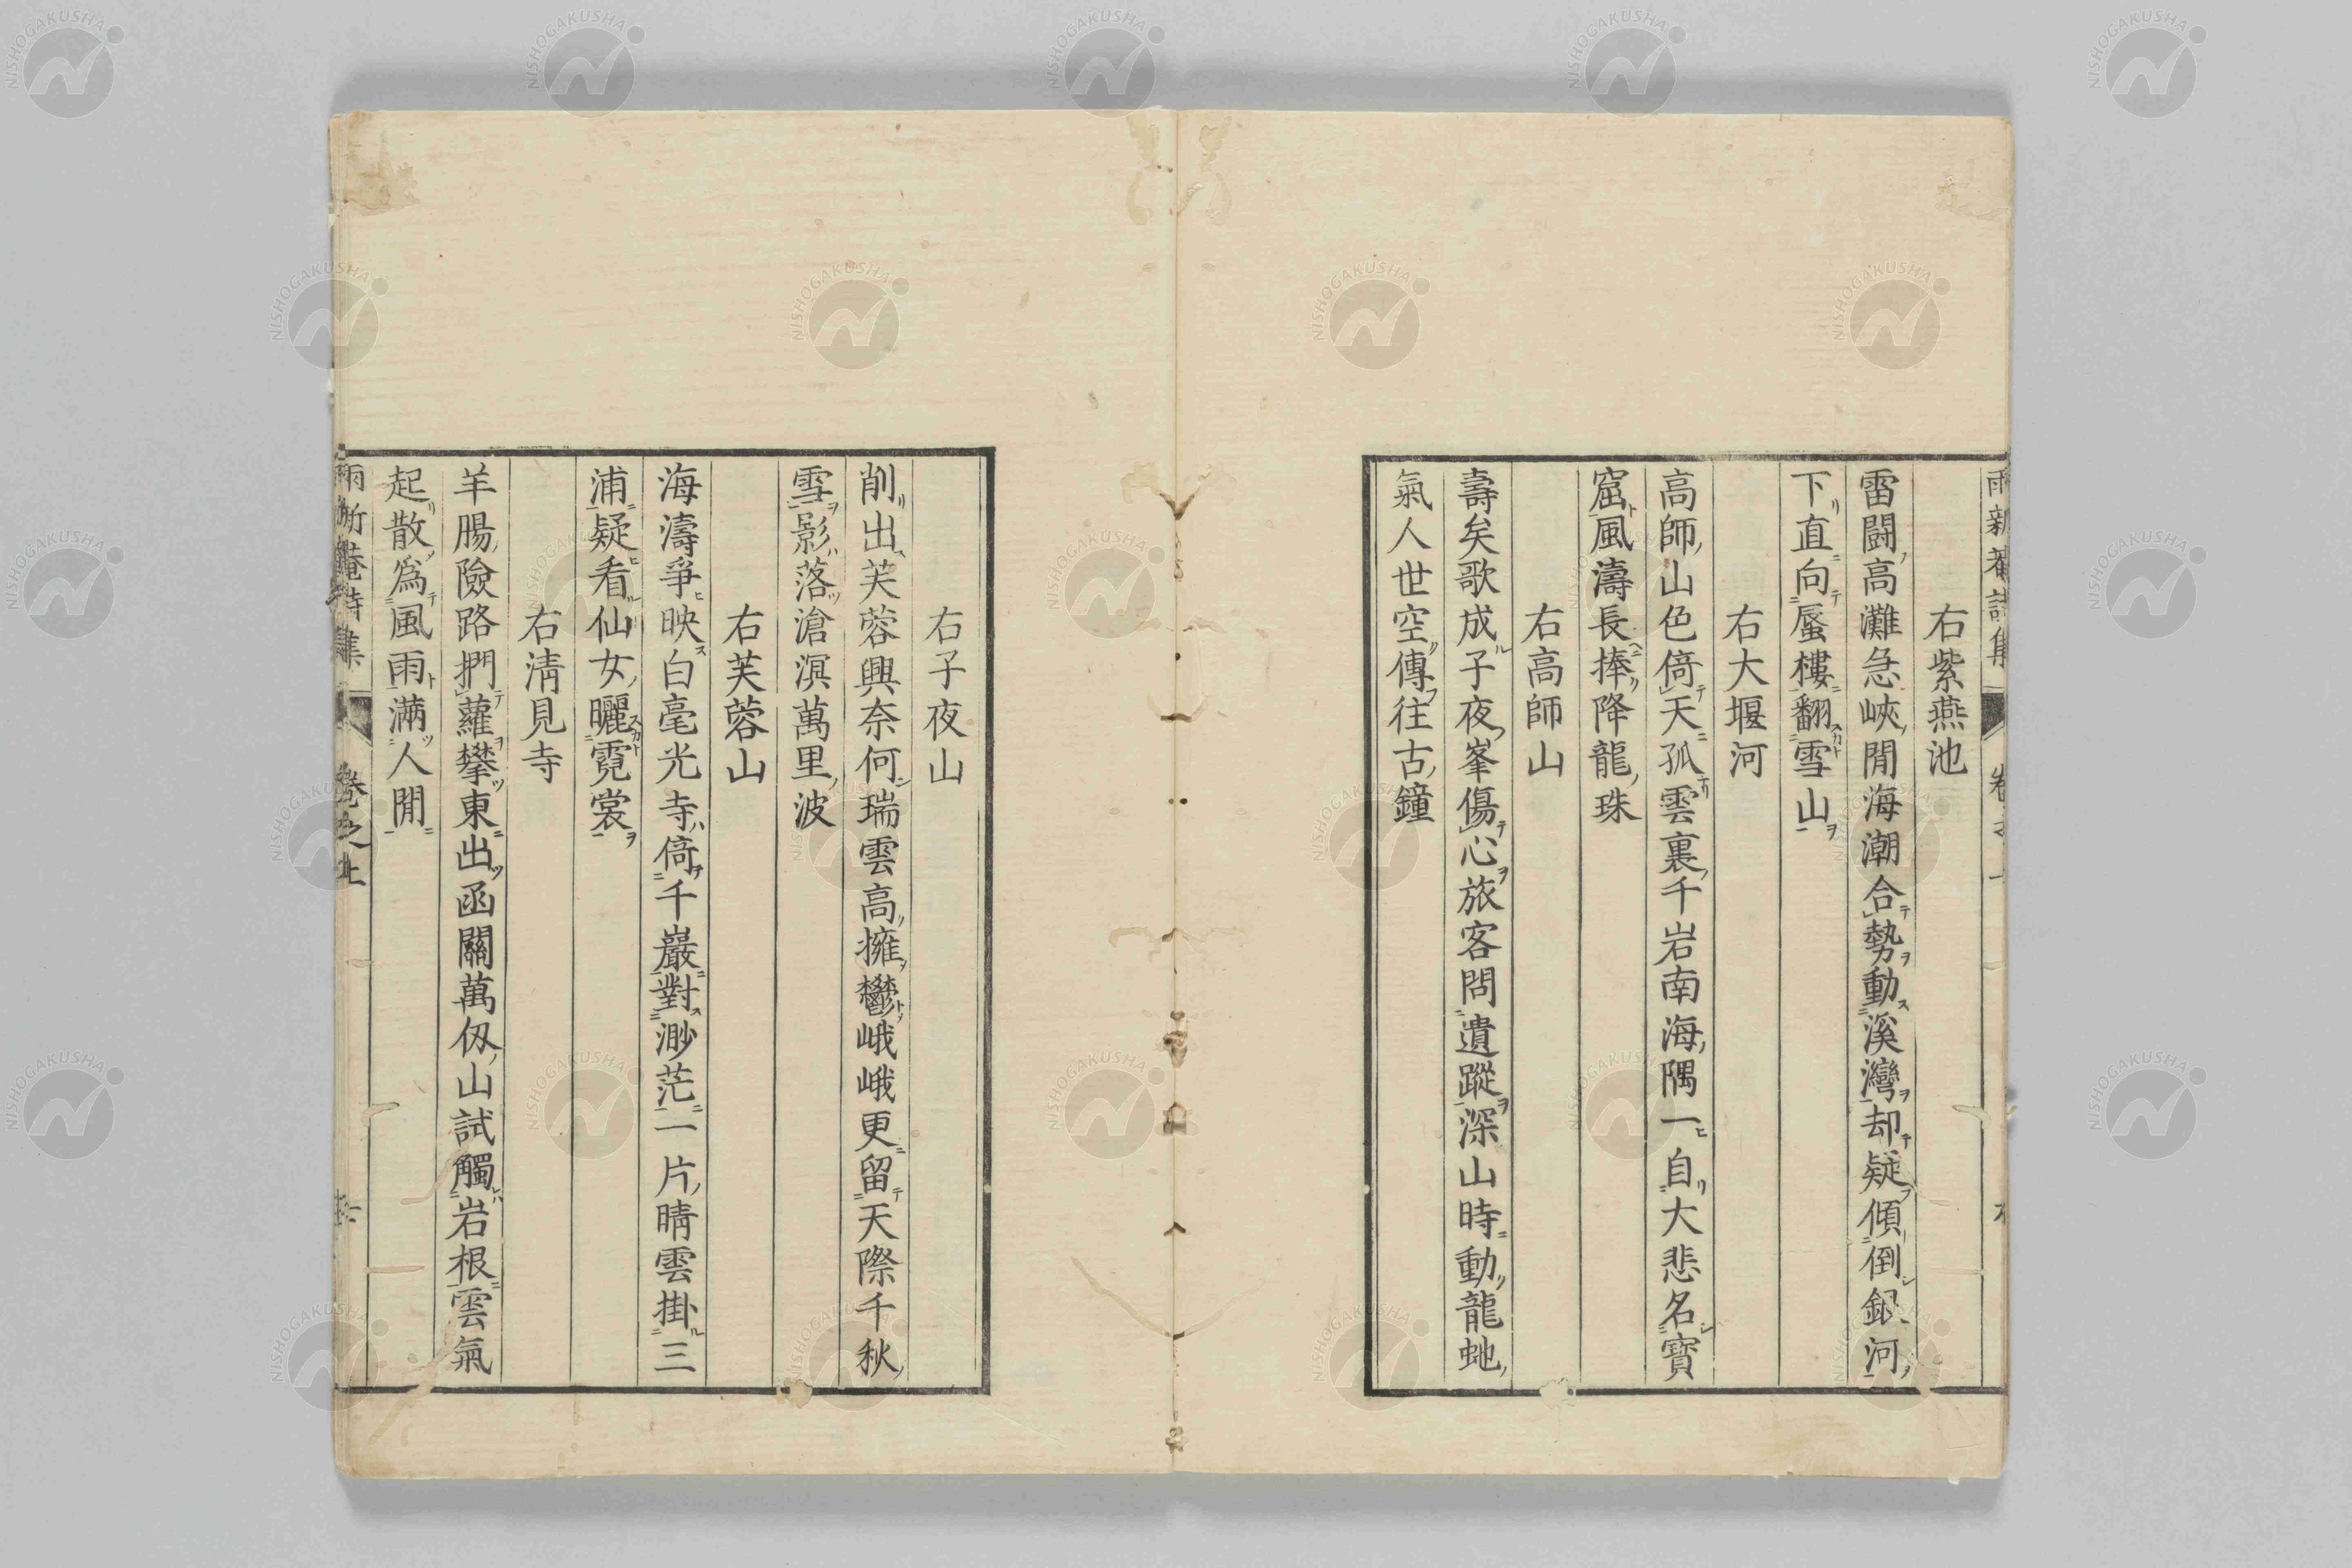 右紫燕池
雷闘高灘急峽閒海潮合勢動溪灣却疑傾倒銀河
下直向蜃樓翻雪山
右大堰河
高師山色倚天孤雲裏千岩南海隅一自大悲名寶
窟風濤長捧降龍珠
右高師山
壽矣歌成子夜峯傷心旅客問遺蹤深山時動龍虵
氣人世空傳往古鐘
右子夜山
削出芙蓉興奈何瑞雲高擁鬱峨峨更留天際千秋
雪影落滄溟萬里波
右芙蓉山
海濤爭映白毫光寺倚千巖對渺茫一片晴雲掛三
浦疑看仙女曬霓裳
右淸見寺
羊腸險路捫蘿攀東出函關萬仭山試觸岩根雲氣
起散爲風雨滿人閒
NISHOGAKUSHA